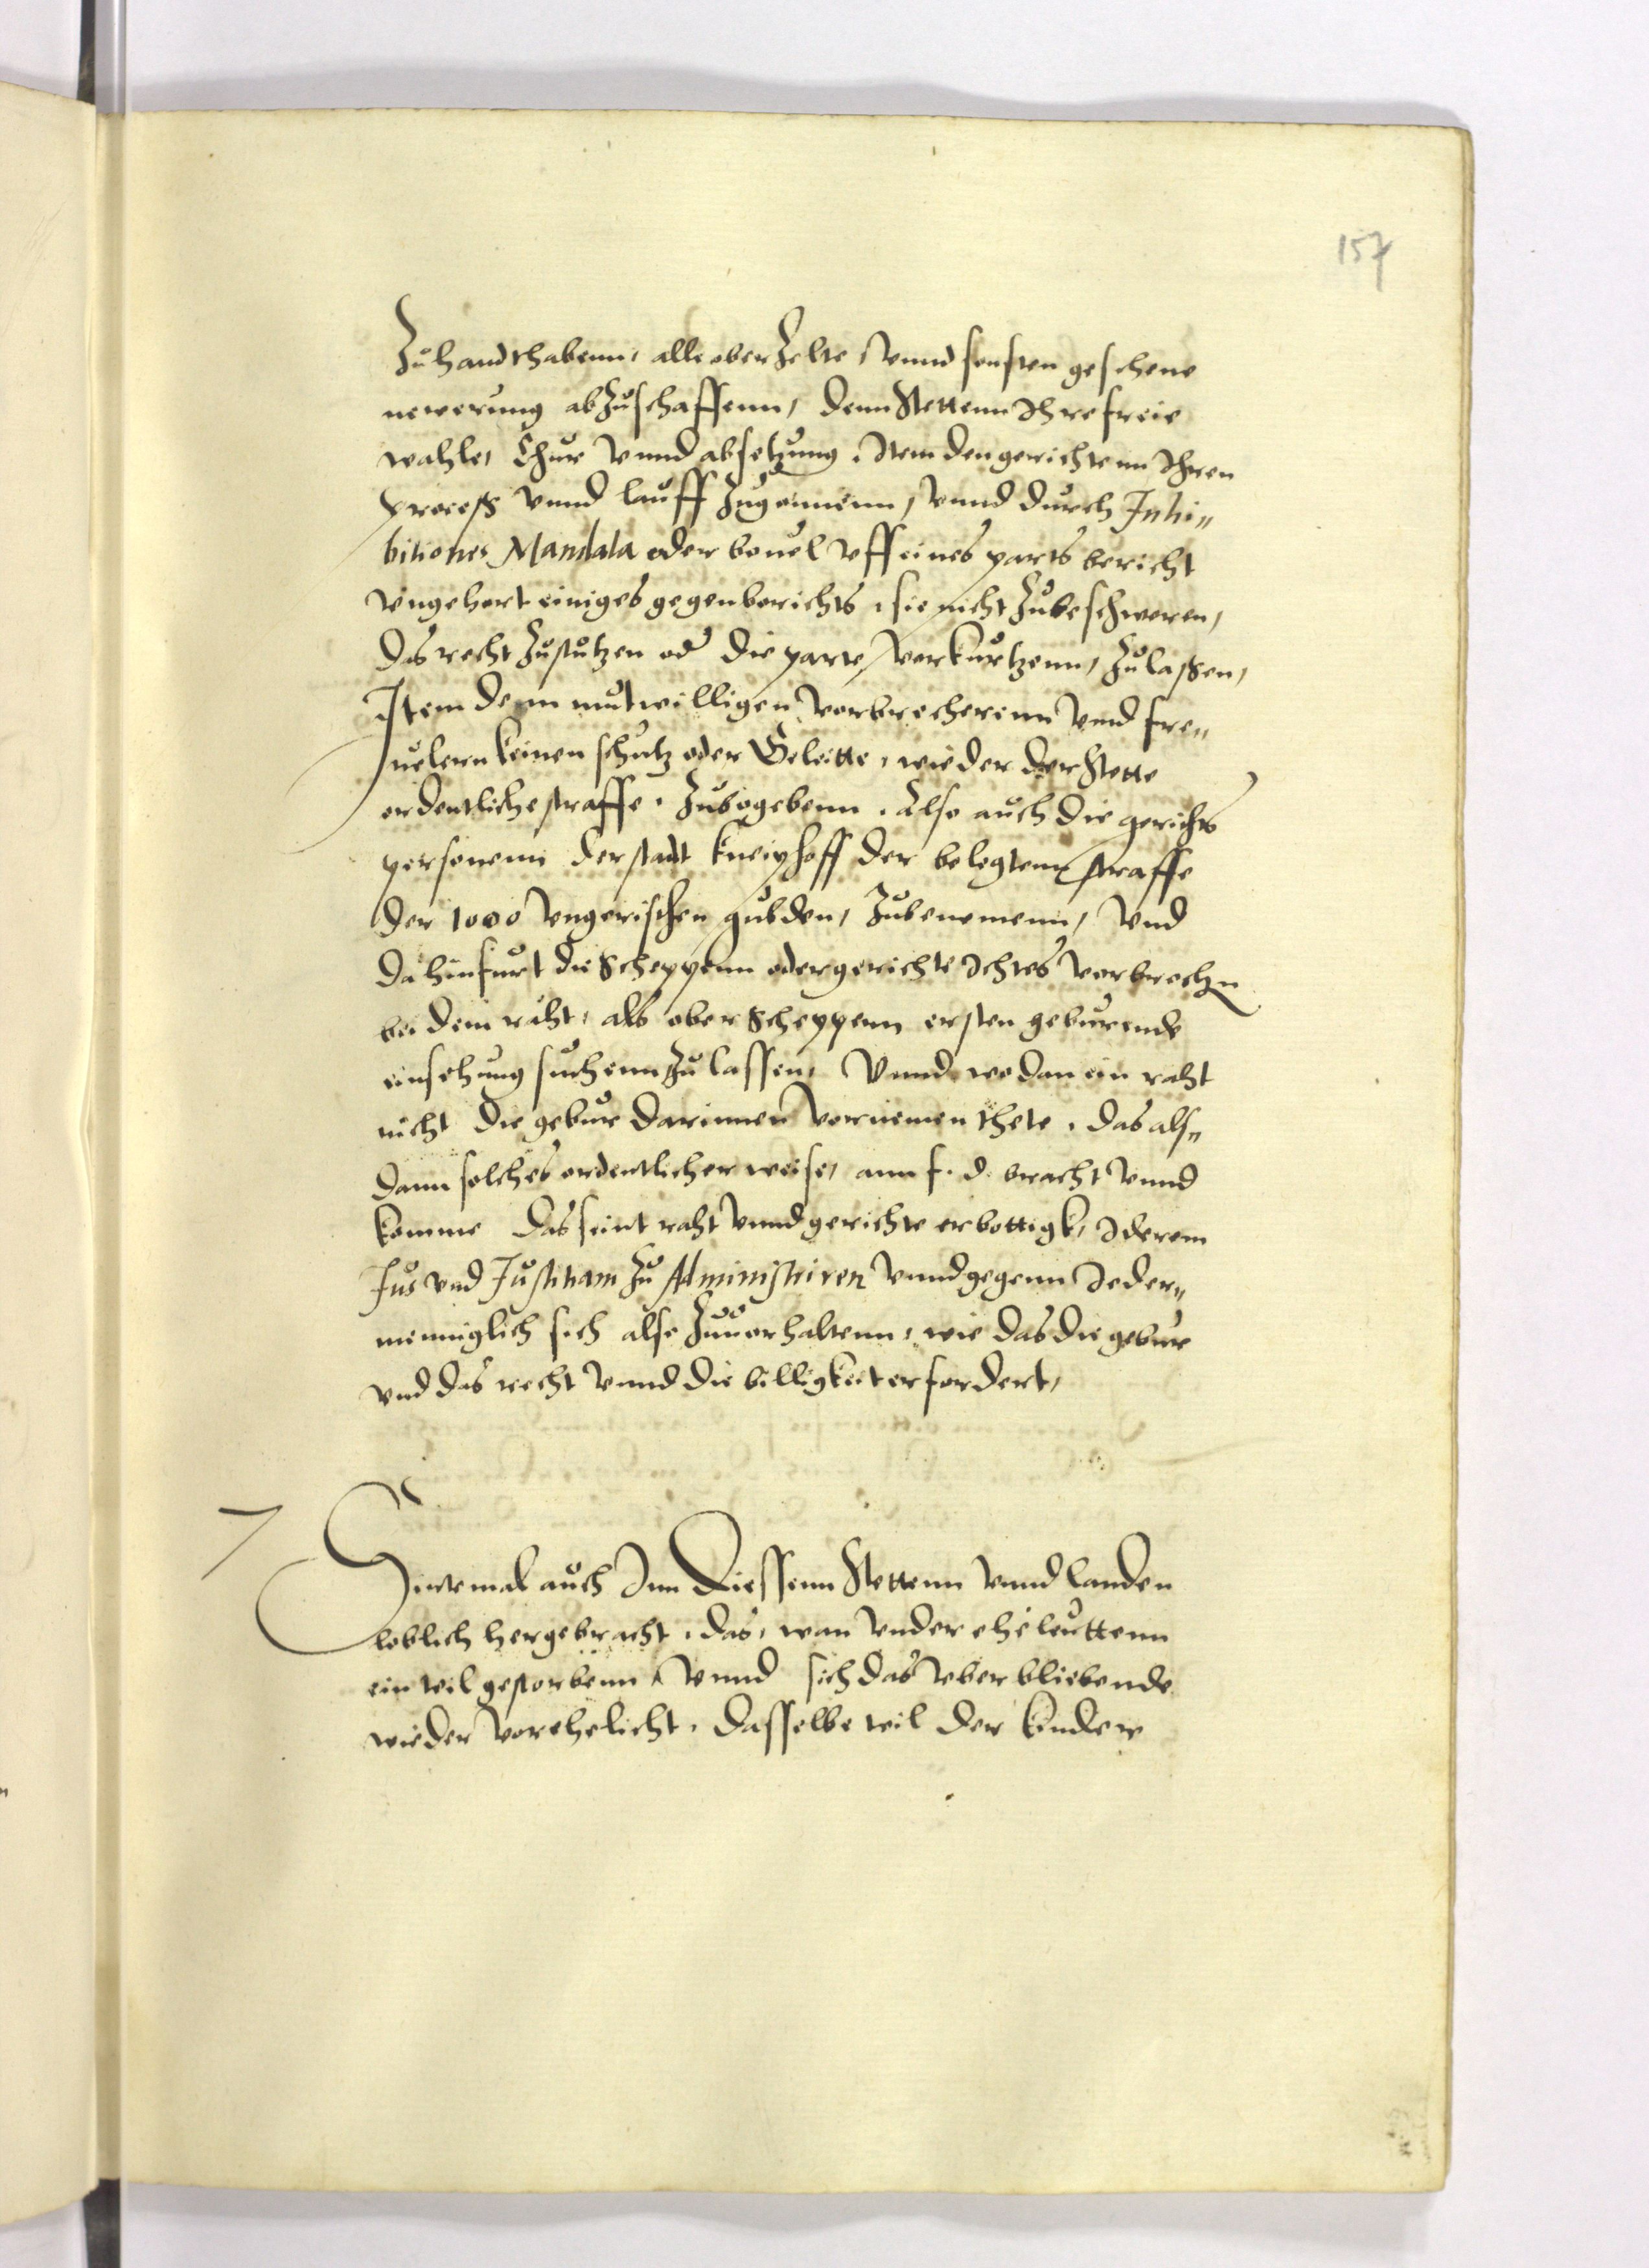 157
Zuhandthabenn, alle oberZelte, Vnnd sonsten geschene
newerung abzuschaffenn, denn Stettenn Ihre freie
wahle, Chur Vnnd absetzung, Item den gerichtenn Ihren
proceß Vnnd lauff zugonnenn, Vnnd durch Inhi„
bitiones, Mandata oder bouel Vff eines parts bericht
Vngehort einiges gegenberichts, sie nicht Zubeschweren,
das recht Zustutzen od die parte Vorkurtzenn, Zulaßen,
Item denn mutwilligen Vorbrecherenn Vnd fre„
uelern keinen schutz oder Geleitte, wieder der Stette
ordentliche straffe, Zubogebenn, Also auch die gerichts
personenn der stadt Kneiphoff der belegtenn straffe
der 1000 Vngerischen gulden, Zubenemenn, Vnd
da hinfurt die Scheppenn oder gerichte Ichtes Vorbrechn
bei dem raht, als ober Scheppenn ersten geburende
einsehung suchenn Zulassen, Vnnd wo dan ein raht
nicht die gebur darinnen Vornemen thete, das als„
dann solches ordentlicher weise, ann f. d. bracht Vnnd
komme das seint raht Vnnd gerichte erbottigk, Iderem
Jus vnd Justitiam Zu Administriren Vnnd gegenn Jeder„
menniglich sich also Zuuorhaltenn, wie das die gebur
vnd das recht Vnnd die billigkeit erfordert,
7
Sintemal auch Inn Diessenn Stettenn Vnnd landen
loblich hergebracht, das, wan Vnder eheleuttenn
ein teil gestorbenn, Vnnd sich das Vberbliebende
wieder Vorehelicht, dasselbe teil der kinder